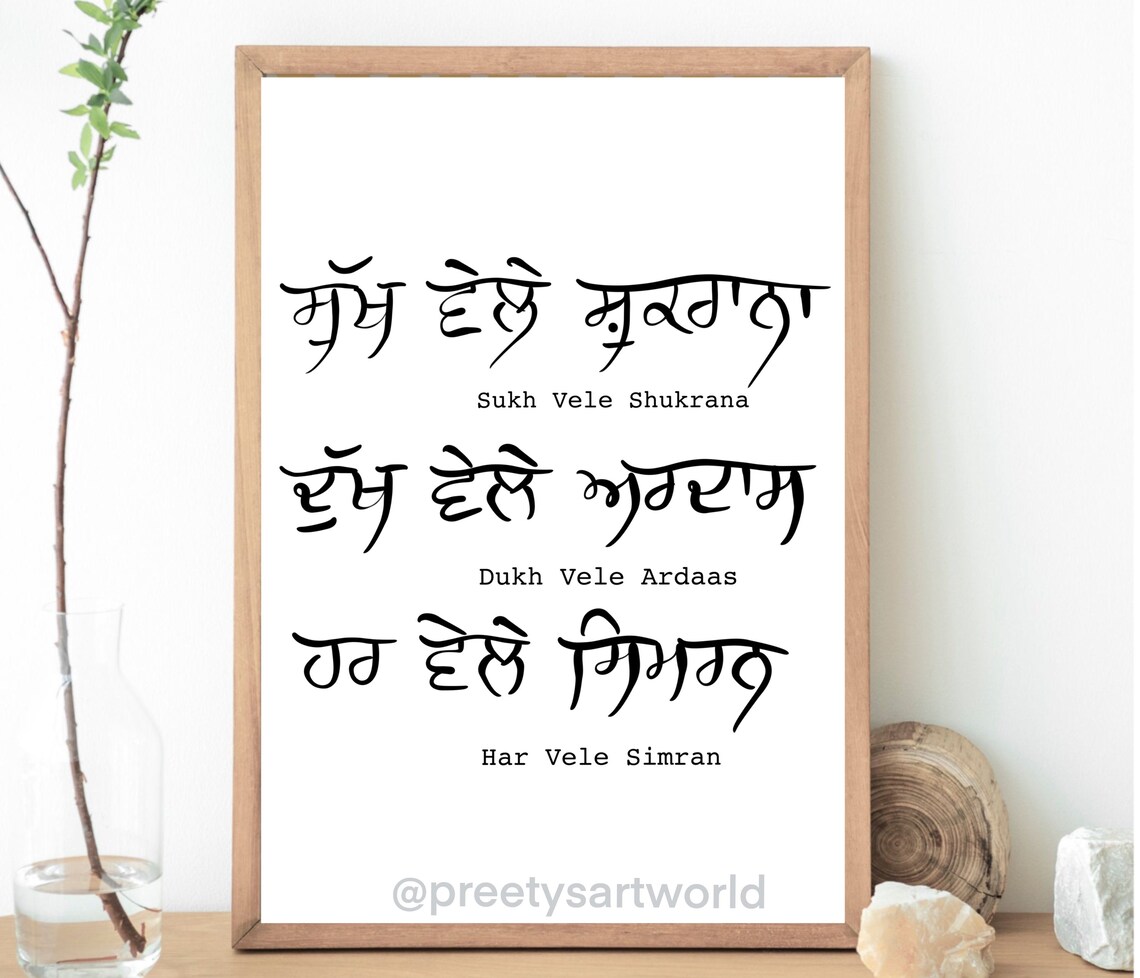 ਸੁੱਖ ਵੇਲੇ ਸ਼ੁਕਰਾਨਾ
Sukh Vele Shukrana
ਦੁੱਖ ਵੇਲੇ ਅਰਦਾਸ
Dukh Vele Ardaas
ਹਰ ਵੇਲੇ ਸਿਮਰਨ
Har Vele Simran
@preetysartworld